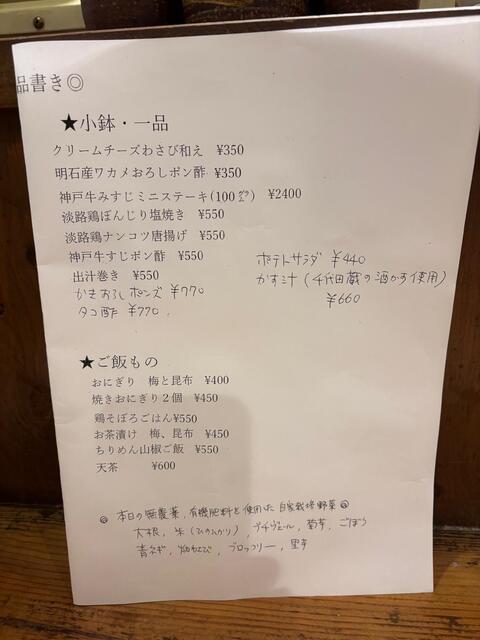 品書き◎
★小鉢・一品
クリームチーズわさび和え ¥350
明石産ワカメおろしポン酢 ¥350
神戸牛みすじミニステーキ(100㌘) ¥2400
淡路鶏ぼんじり塩焼き ¥550
淡路鶏ナンコツ唐揚げ ¥550
神戸牛すじポン酢 ¥550
出汁巻き ¥550
かきおろしポンズ ¥770
タコ酢 ¥770
ポテトサラダ ¥440
かす汁(千代田蔵の酒かす使用)
¥660
★ご飯もの
おにぎり 梅と昆布 ¥400
焼きおにぎり2個 ¥450
鶏そぼろごはん¥550
お茶漬け 梅、昆布 ¥450
ちりめん山椒ご飯 ¥550
天茶 ¥600
本日の無農薬、有機肥料を使用した自家栽培野菜
大根、米(ひのひかり)、プチヴェール、菊芋、ごぼう
青ネギ、ブロッコリー、里芋